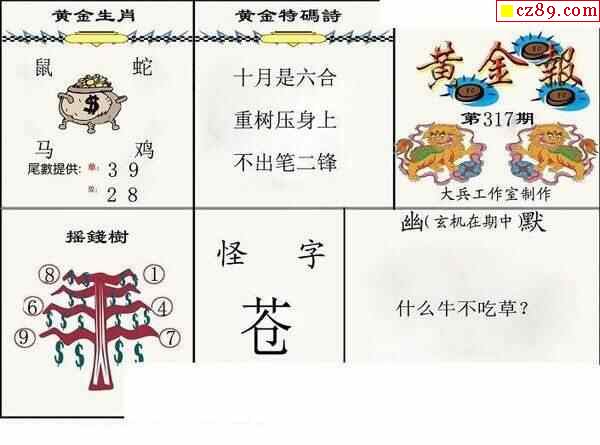 cz89.com
黄金生肖
鼠 蛇
马 鸡
尾數提供: 单: 3 9
2 8
黄金特碼詩
十月是六合
重树压身上
不出笔二锋
黄金報
第317期
大兵工作室制作
摇錢樹
⑧ ①
⑥ ④
⑨ ⑦
怪 字
苍
幽(玄机在期中)默
什么牛不吃草?